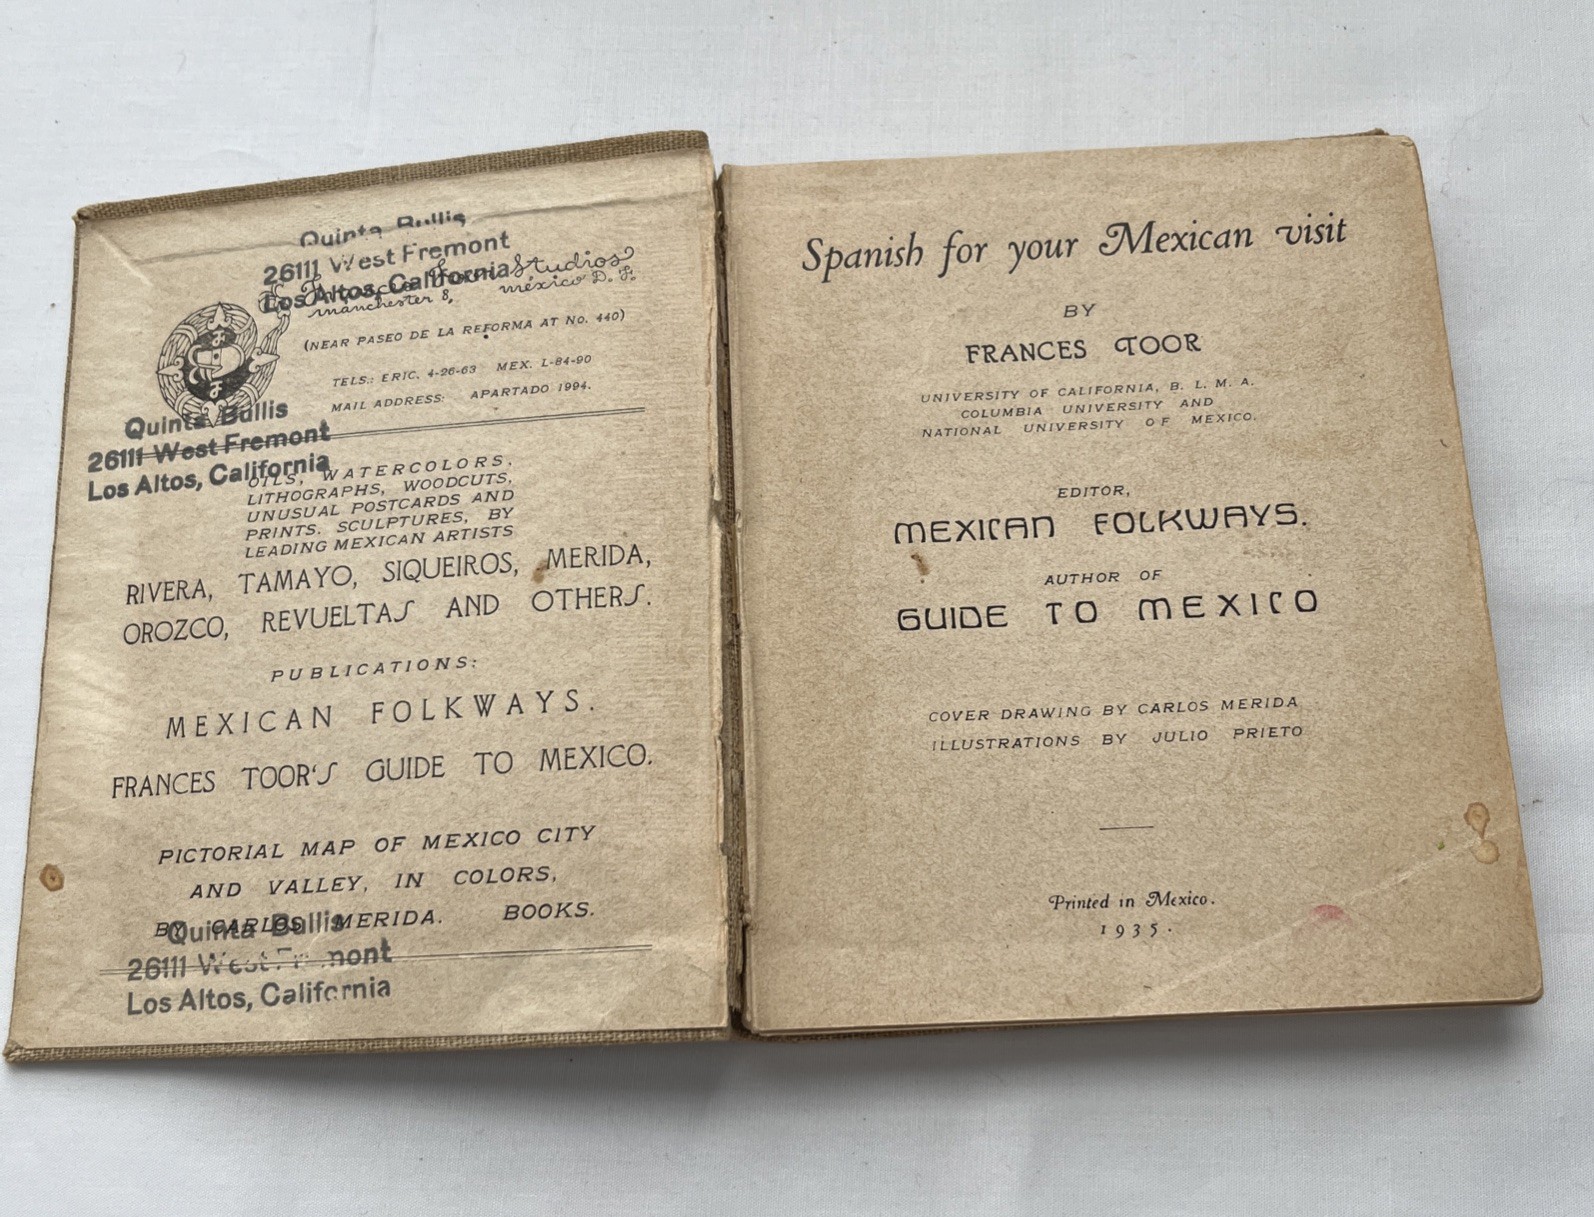 Quinta Bullis
26111 West Fremont
Los Altos, California
Frances Toor Studios
manchester 8, méxico D. F.
(NEAR PASEO DE LA REFORMA AT No. 440)
TELS.: ERIC. 4-26-63 MEX. L-84-90
MAIL ADDRESS: APARTADO 1994.
Quinta Bullis
26111 West Fremont
Los Altos, California
OILS, WATERCOLORS,
LITHOGRAPHS, WOODCUTS,
UNUSUAL POSTCARDS AND
PRINTS. SCULPTURES, BY
LEADING MEXICAN ARTISTS
RIVERA, TAMAYO, SIQUEIROS, MERIDA,
OROZCO, REVUELTAS AND OTHERS.
PUBLICATIONS:
MEXICAN FOLKWAYS.
FRANCES TOOR'S GUIDE TO MEXICO.
PICTORIAL MAP OF MEXICO CITY
AND VALLEY, IN COLORS,
BY CARLOS MERIDA. BOOKS.
Quinta Bullis
26111 West Fremont
Los Altos, California
Spanish for your Mexican visit
BY
FRANCES TOOR
UNIVERSITY OF CALIFORNIA, B. L. M. A.
COLUMBIA UNIVERSITY AND
NATIONAL UNIVERSITY OF MEXICO.
EDITOR,
MEXICAN FOLKWAYS.
AUTHOR OF
GUIDE TO MEXICO
COVER DRAWING BY CARLOS MERIDA
ILLUSTRATIONS BY JULIO PRIETO
Printed in Mexico.
1935.